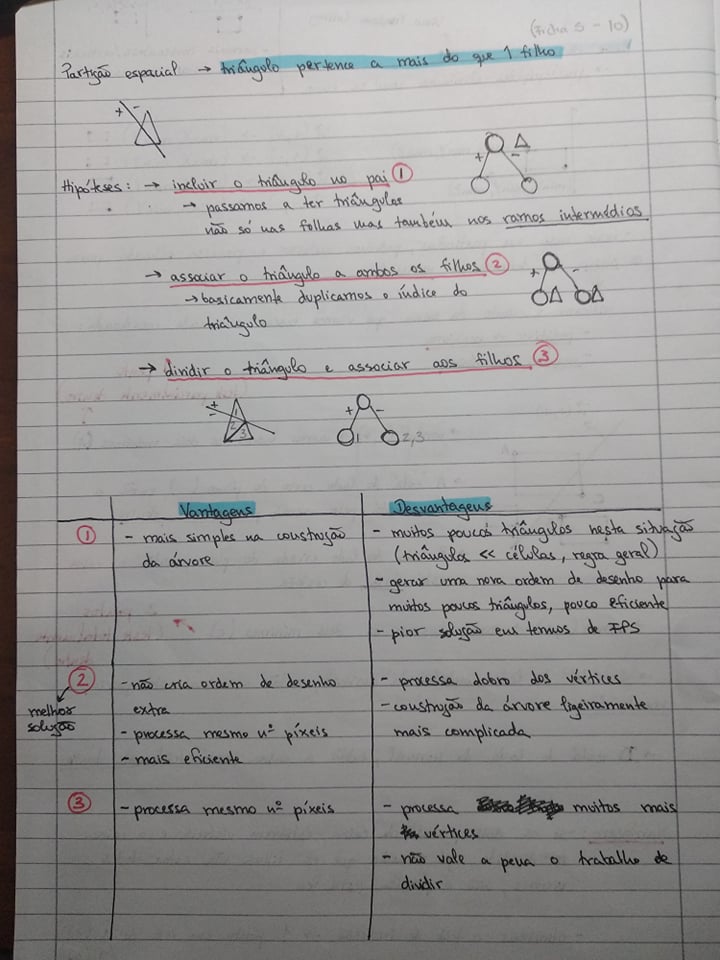 (Ficha 5 - 10)
Partição espacial → triângulo pertence a mais do que 1 filho
+ -
+ -
Hipóteses: → incluir o triângulo no pai 1
→ passamos a ter triângulos
não só nas folhas mas também nos ramos intermédios
→ associar o triângulo a ambos os filhos 2
+ -
→ basicamente duplicamos o índice do
triângulo
→ dividir o triângulo e associar aos filhos 3
+
-
1
2
3
+ -
1 2,3
Vantagens Desvantagens
1 - mais simples na construção
da árvore
- muitos poucos triângulos nesta situação
(triângulos << células, regra geral)
- gerar uma nova ordem de desenho para
muitos poucos triângulos, pouco eficiente
- pior solução em termos de FPS
2
melhor
solução
- não cria ordem de desenho
extra
- processa mesmo nº píxeis
- mais eficiente
- processa dobro dos vértices
- construção da árvore ligeiramente
mais complicada
3 - processa mesmo nº píxeis
- processa muitos mais
vértices
- não vale a pena o trabalho de
dividir